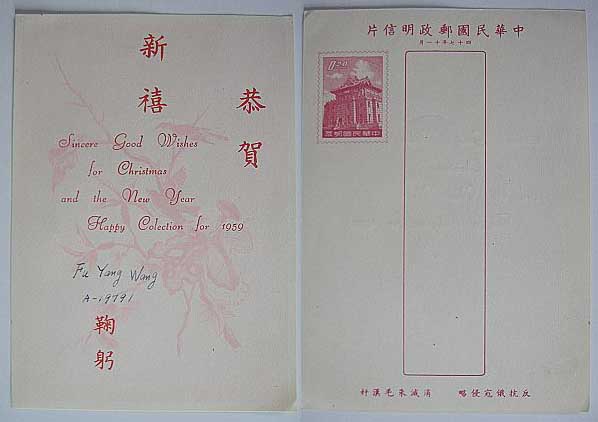 恭賀
新禧
Sincere Good Wishes
for Christmas
and the New Year
Happy Colection for 1959
Fu Yang Wang
A-19791
鞠躬
中華民國郵政明信片
四十七年十一月
0.20
中華民國郵票
反抗俄寇侵略 消滅朱毛漢奸